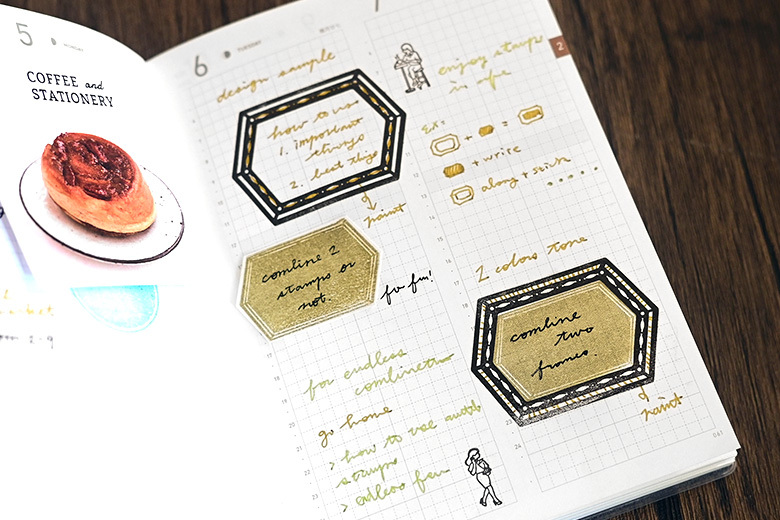 5
MONDAY
COFFEE and
STATIONERY
6
TUESDAY
design sample
how to use
1. important
things
2. best things
paint
combine 2
stamps or
not.
for fun!
for endless
go home
> how to use
stamps
> endless fun
7
2
enjoy stamps
in
Ex:
+ =
+ write
along + stick
2 colors tone
combine
two
frames.
paint
23
24